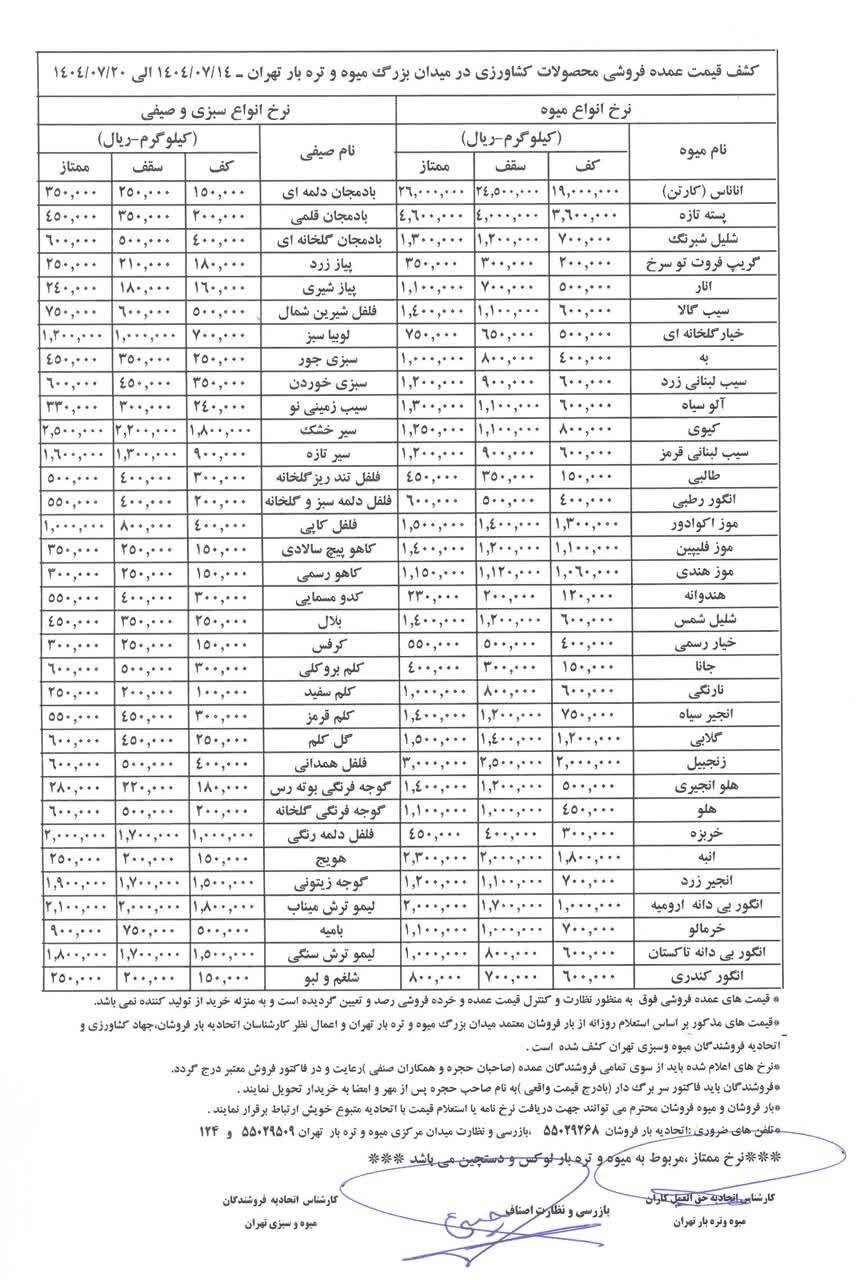 کشف قیمت عمده فروشی محصولات کشاورزی در میدان بزرگ میوه و تره بار تهران ــ ۱٤۰٤/۰۷/۱٤ الی ۱٤۰٤/۰۷/۲۰
نرخ انواع میوه نرخ انواع سبزی و صیفی
نام میوه (کیلوگرم-ریال) نام صیفی (کیلوگرم-ریال)
کف سقف ممتاز کف سقف ممتاز
اناناس (کارتن) ۱۹,۰۰۰,۰۰۰ ۲٤,۵۰۰,۰۰۰ ۲٦,۰۰۰,۰۰۰ بادمجان دلمه ای ۱۵۰,۰۰۰ ۲۵۰,۰۰۰ ۳۵۰,۰۰۰
پسته تازه ۳,٦۰۰,۰۰۰ ٤,۰۰۰,۰۰۰ ٤,٦۰۰,۰۰۰ بادمجان قلمی ۲۰۰,۰۰۰ ۳۵۰,۰۰۰ ٤۵۰,۰۰۰
شلیل شبرنگ ۷۰۰,۰۰۰ ۱,۲۰۰,۰۰۰ ۱,۳۰۰,۰۰۰ بادمجان گلخانه ای ٤۰۰,۰۰۰ ۵۰۰,۰۰۰ ٦۰۰,۰۰۰
گریپ فروت تو سرخ ۲۰۰,۰۰۰ ۳۰۰,۰۰۰ ۳۵۰,۰۰۰ پیاز زرد ۱۸۰,۰۰۰ ۲۱۰,۰۰۰ ۲۵۰,۰۰۰
انار ۵۰۰,۰۰۰ ۷۰۰,۰۰۰ ۱,۱۰۰,۰۰۰ پیاز شیری ۱٦۰,۰۰۰ ۱۸۰,۰۰۰ ۲٤۰,۰۰۰
سیب گالا ٦۰۰,۰۰۰ ۱,۱۰۰,۰۰۰ ۱,٤۰۰,۰۰۰ فلفل شیرین شمال ۵۰۰,۰۰۰ ٦۰۰,۰۰۰ ۷۵۰,۰۰۰
خیارگلخانه ای ۵۰۰,۰۰۰ ٦۵۰,۰۰۰ ۷۵۰,۰۰۰ لوبیا سبز ۷۰۰,۰۰۰ ۱,۰۰۰,۰۰۰ ۱,۲۰۰,۰۰۰
به ٤۰۰,۰۰۰ ۸۰۰,۰۰۰ ۱,۰۰۰,۰۰۰ سبزی جور ۲۵۰,۰۰۰ ۳۵۰,۰۰۰ ٤۵۰,۰۰۰
سیب لبنانی زرد ٦۰۰,۰۰۰ ۹۰۰,۰۰۰ ۱,۲۰۰,۰۰۰ سبزی خوردن ۳۵۰,۰۰۰ ٤۵۰,۰۰۰ ٦۰۰,۰۰۰
آلو سیاه ٦۰۰,۰۰۰ ۱,۱۰۰,۰۰۰ ۱,۳۰۰,۰۰۰ سیب زمینی نو ۲٤۰,۰۰۰ ۳۰۰,۰۰۰ ۳۳۰,۰۰۰
کیوی ۸۰۰,۰۰۰ ۱,۱۰۰,۰۰۰ ۱,۲۵۰,۰۰۰ سیر خشک ۱,۸۰۰,۰۰۰ ۲,۲۰۰,۰۰۰ ۲,۵۰۰,۰۰۰
سیب لبنانی قرمز ٦۰۰,۰۰۰ ۹۰۰,۰۰۰ ۱,۲۰۰,۰۰۰ سیر تازه ۹۰۰,۰۰۰ ۱,۳۰۰,۰۰۰ ۱,٦۰۰,۰۰۰
طالبی ۱۵۰,۰۰۰ ۳۵۰,۰۰۰ ٤۵۰,۰۰۰ فلفل تند ریزگلخانه ۳۰۰,۰۰۰ ٤۰۰,۰۰۰ ۵۰۰,۰۰۰
انگور رطبی ٤۰۰,۰۰۰ ۵۰۰,۰۰۰ ٦۰۰,۰۰۰ فلفل دلمه سبز و گلخانه ۲۰۰,۰۰۰ ٤۰۰,۰۰۰ ۵۵۰,۰۰۰
موز اکوادور ۱,۳۰۰,۰۰۰ ۱,٤۰۰,۰۰۰ ۱,۵۰۰,۰۰۰ فلفل کاپی ٤۰۰,۰۰۰ ۸۰۰,۰۰۰ ۱,۰۰۰,۰۰۰
موز فلیپین ۱,۱۰۰,۰۰۰ ۱,۲۰۰,۰۰۰ ۱,٤۰۰,۰۰۰ کاهو پیچ سالادی ۱۵۰,۰۰۰ ۲۵۰,۰۰۰ ۳۵۰,۰۰۰
موز هندی ۱,۰٦۰,۰۰۰ ۱,۱۲۰,۰۰۰ ۱,۱۵۰,۰۰۰ کاهو رسمی ۱۵۰,۰۰۰ ۲۵۰,۰۰۰ ۳۰۰,۰۰۰
هندوانه ۱۲۰,۰۰۰ ۲۰۰,۰۰۰ ۲۳۰,۰۰۰ کدو مسمایی ۳۰۰,۰۰۰ ٤۰۰,۰۰۰ ۵۵۰,۰۰۰
شلیل شمس ٦۰۰,۰۰۰ ۱,۲۰۰,۰۰۰ ۱,٤۰۰,۰۰۰ بلال ۲۵۰,۰۰۰ ۳۵۰,۰۰۰ ٤۵۰,۰۰۰
خیار رسمی ٤۰۰,۰۰۰ ۵۰۰,۰۰۰ ۵۵۰,۰۰۰ کرفس ۱۵۰,۰۰۰ ۲۵۰,۰۰۰ ۳۰۰,۰۰۰
جانا ۱۵۰,۰۰۰ ۳۰۰,۰۰۰ ٤۰۰,۰۰۰ کلم بروکلی ۳۰۰,۰۰۰ ۵۰۰,۰۰۰ ٦۰۰,۰۰۰
نارنگی ٦۰۰,۰۰۰ ۸۰۰,۰۰۰ ۱,۰۰۰,۰۰۰ کلم سفید ۱۰۰,۰۰۰ ۲۰۰,۰۰۰ ۲۵۰,۰۰۰
انجیر سیاه ۷۵۰,۰۰۰ ۱,۲۰۰,۰۰۰ ۱,٤۰۰,۰۰۰ کلم قرمز ۳۰۰,۰۰۰ ٤۵۰,۰۰۰ ۵۵۰,۰۰۰
گلابی ۱,۲۰۰,۰۰۰ ۱,٤۰۰,۰۰۰ ۱,۵۰۰,۰۰۰ گل کلم ۲۵۰,۰۰۰ ٤۵۰,۰۰۰ ٦۰۰,۰۰۰
زنجبیل ۲,۰۰۰,۰۰۰ ۲,۵۰۰,۰۰۰ ۳,۰۰۰,۰۰۰ فلفل همدانی ٤۰۰,۰۰۰ ۵۰۰,۰۰۰ ٦۰۰,۰۰۰
هلو انجیری ۵۰۰,۰۰۰ ۱,۲۰۰,۰۰۰ ۱,٤۰۰,۰۰۰ گوجه فرنگی بوته رس ۱۸۰,۰۰۰ ۲۲۰,۰۰۰ ۲۸۰,۰۰۰
هلو ٤۵۰,۰۰۰ ۱,۰۰۰,۰۰۰ ۱,۱۰۰,۰۰۰ گوجه فرنگی گلخانه ۲۰۰,۰۰۰ ۵۰۰,۰۰۰ ٦۰۰,۰۰۰
خربزه ۳۰۰,۰۰۰ ٤۰۰,۰۰۰ ٤۵۰,۰۰۰ فلفل دلمه رنگی ۱,۰۰۰,۰۰۰ ۱,۷۰۰,۰۰۰ ۲,۰۰۰,۰۰۰
انبه ۱,۸۰۰,۰۰۰ ۲,۰۰۰,۰۰۰ ۲,۳۰۰,۰۰۰ هویج ۱۵۰,۰۰۰ ۲۰۰,۰۰۰ ۲۵۰,۰۰۰
انجیر زرد ۷۰۰,۰۰۰ ۱,۱۰۰,۰۰۰ ۱,۲۰۰,۰۰۰ گوجه زیتونی ۱,۵۰۰,۰۰۰ ۱,۷۰۰,۰۰۰ ۱,۹۰۰,۰۰۰
انگور بی دانه ارومیه ۱,۰۰۰,۰۰۰ ۱,۷۰۰,۰۰۰ ۲,۰۰۰,۰۰۰ لیمو ترش میناب ۱,۸۰۰,۰۰۰ ۲,۰۰۰,۰۰۰ ۲,۱۰۰,۰۰۰
خرمالو ۷۰۰,۰۰۰ ۱,۰۰۰,۰۰۰ ۱,۱۰۰,۰۰۰ بامیه ۵۰۰,۰۰۰ ۷۵۰,۰۰۰ ۹۰۰,۰۰۰
انگور بی دانه تاکستان ٦۰۰,۰۰۰ ۸۰۰,۰۰۰ ۱,۰۰۰,۰۰۰ لیمو ترش سنگی ۱,۵۰۰,۰۰۰ ۱,۷۰۰,۰۰۰ ۱,۸۰۰,۰۰۰
انگور کندری ٦۰۰,۰۰۰ ۷۰۰,۰۰۰ ۸۰۰,۰۰۰ شلغم و لبو ۱۵۰,۰۰۰ ۲۰۰,۰۰۰ ۲۵۰,۰۰۰
* قیمت های عمده فروشی فوق به منظور نظارت و کنترل قیمت عمده و خرده فروشی رصد و تعیین گردیده است و به منزله خرید از تولید کننده نمی باشد.
*قیمت های مذکور بر اساس استعلام روزانه از بار فروشان معتمد میدان بزرگ میوه و تره بار تهران و اعمال نظر کارشناسان اتحادیه بار فروشان،جهاد کشاورزی و
اتحادیه فروشندگان میوه وسبزی تهران کشف شده است .
*نرخ های اعلام شده باید از سوی تمامی فروشندگان عمده (صاحبان حجره و همکاران صنفی )رعایت و در فاکتور فروش معتبر درج گردد.
*فروشندگان باید فاکتور سر برگ دار (بادرج قیمت واقعی )به نام صاحب حجره پس از مهر و امضا به خریدار تحویل نمایند .
*بار فروشان و میوه فروشان محترم می توانند جهت دریافت نرخ نامه یا استعلام قیمت با اتحادیه متبوع خویش ارتباط برقرار نمایند .
*تلفن های ضروری :اتحادیه بار فروشان ۵۵۰۲۹۲٦۸ ،بازرسی و نظارت میدان مرکزی میوه و تره بار تهران ۵۵۰۲۹۵۰۹ و ۱۲٤
***نرخ ممتاز ،مربوط به میوه و تره بار لوکس و دستچین می باشد ***
کارشناس اتحادیه حق العمل کاران بازرسی و نظارت اصناف کارشناس اتحادیه فروشندگان
میوه وتره بار تهران میوه و سبزی تهران